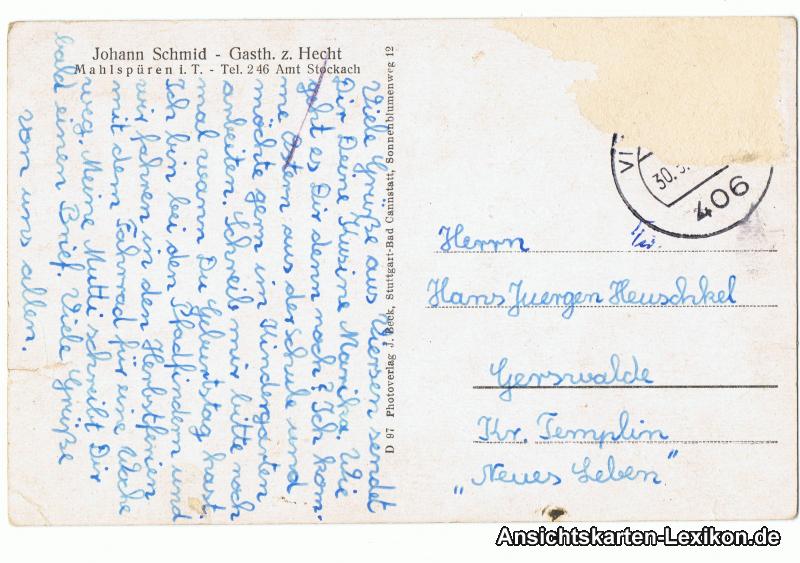 Johann Schmid - Gasth. z. Hecht
Mahlspüren i. T. - Tel. 246 Amt Stockach
Viele Grüße aus Viersen sendet
Dir Deine Kusine Marika. Wie
geht es Dir denn noch? Ich kom-
me Ostern aus der Schule und
möchte gern im Kindergarten
arbeiten. Schreib mir bitte noch
mal wann Du Geburtstag hast.
Ich bin bei den Pfadfindern und
wir fahren in den Herbstferien
mit dem Fahrrad für eine Woche
weg. Meine Mutti schreibt Dir
bald einen Brief. Viele Grüße
von uns allen.
D 97 Photoverlag J. Beck, Stuttgart-Bad Cannstatt, Sonnenblumenweg 12
VI
30.
406
Herrn
Hans Juergen Heuschkel
Gerswalde
Kr. Templin
„Neues Leben"
Ansichtskarten-Lexikon.de